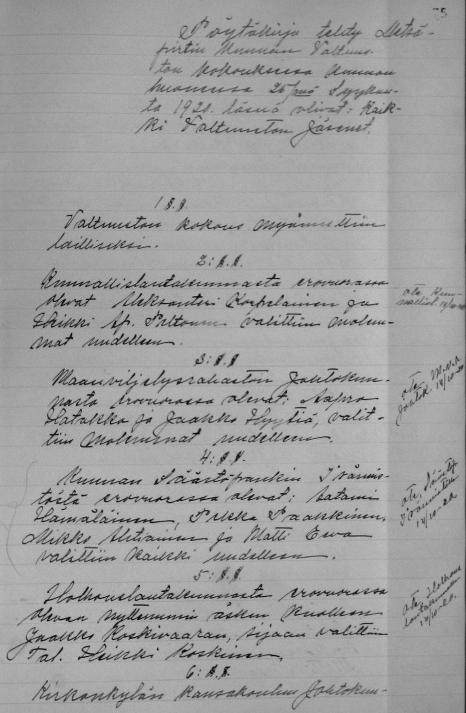 75
Pöytäkirja tehty Metsä-
pirtin Kunnan Valtuus-
ton kokouksessa Kunnan
huoneessa 26 p:nä Syysku-
ta 1920. läsnä olivat: Kaik-
ki Valtuuston Jäsenet.
1 §.§.
Valtuuston kokous myönnettiin
lailliseksi.
2: §.§.
Kunnallislautakunnasta erovuorossa
olevat Aleksanteri Korpelainen ja
Heikki Ap. Paltonen valittiin molem-
mat uudelleen.
ote Kun-
nallisl.
3: §.§
Maanviljelysrahaston Johtokun-
nasta erovuorossa olevat: Aapro
Hatakka ja Jaakko Hyytiä, valit-
tiin molemmat uudelleen.
ote M.v.r.
Johtok. 14/10-20
4: §.§
Kunnan Säästöpankin Isännis-
töstä erovuorossa olevat: Aatami
Hämäläinen, Pekka Paakkinen,
Mikko Urtiainen ja Matti Ewa
valittiin kaikki uudelleen.
ote Säästöp
Isännistöön
14/10-20.
5: §.§
Holhouslautakunnasta erovuorossa
olevan nyttemmin äsken kuolleen
Jaakko Koskivaaran, sijaan valittiin
Tal. Heikki Koskinen.
ote Holhous
lautakunnan
14/10-20.
6: §.§
Kirkonkylän Kansakoulun Johtokun-